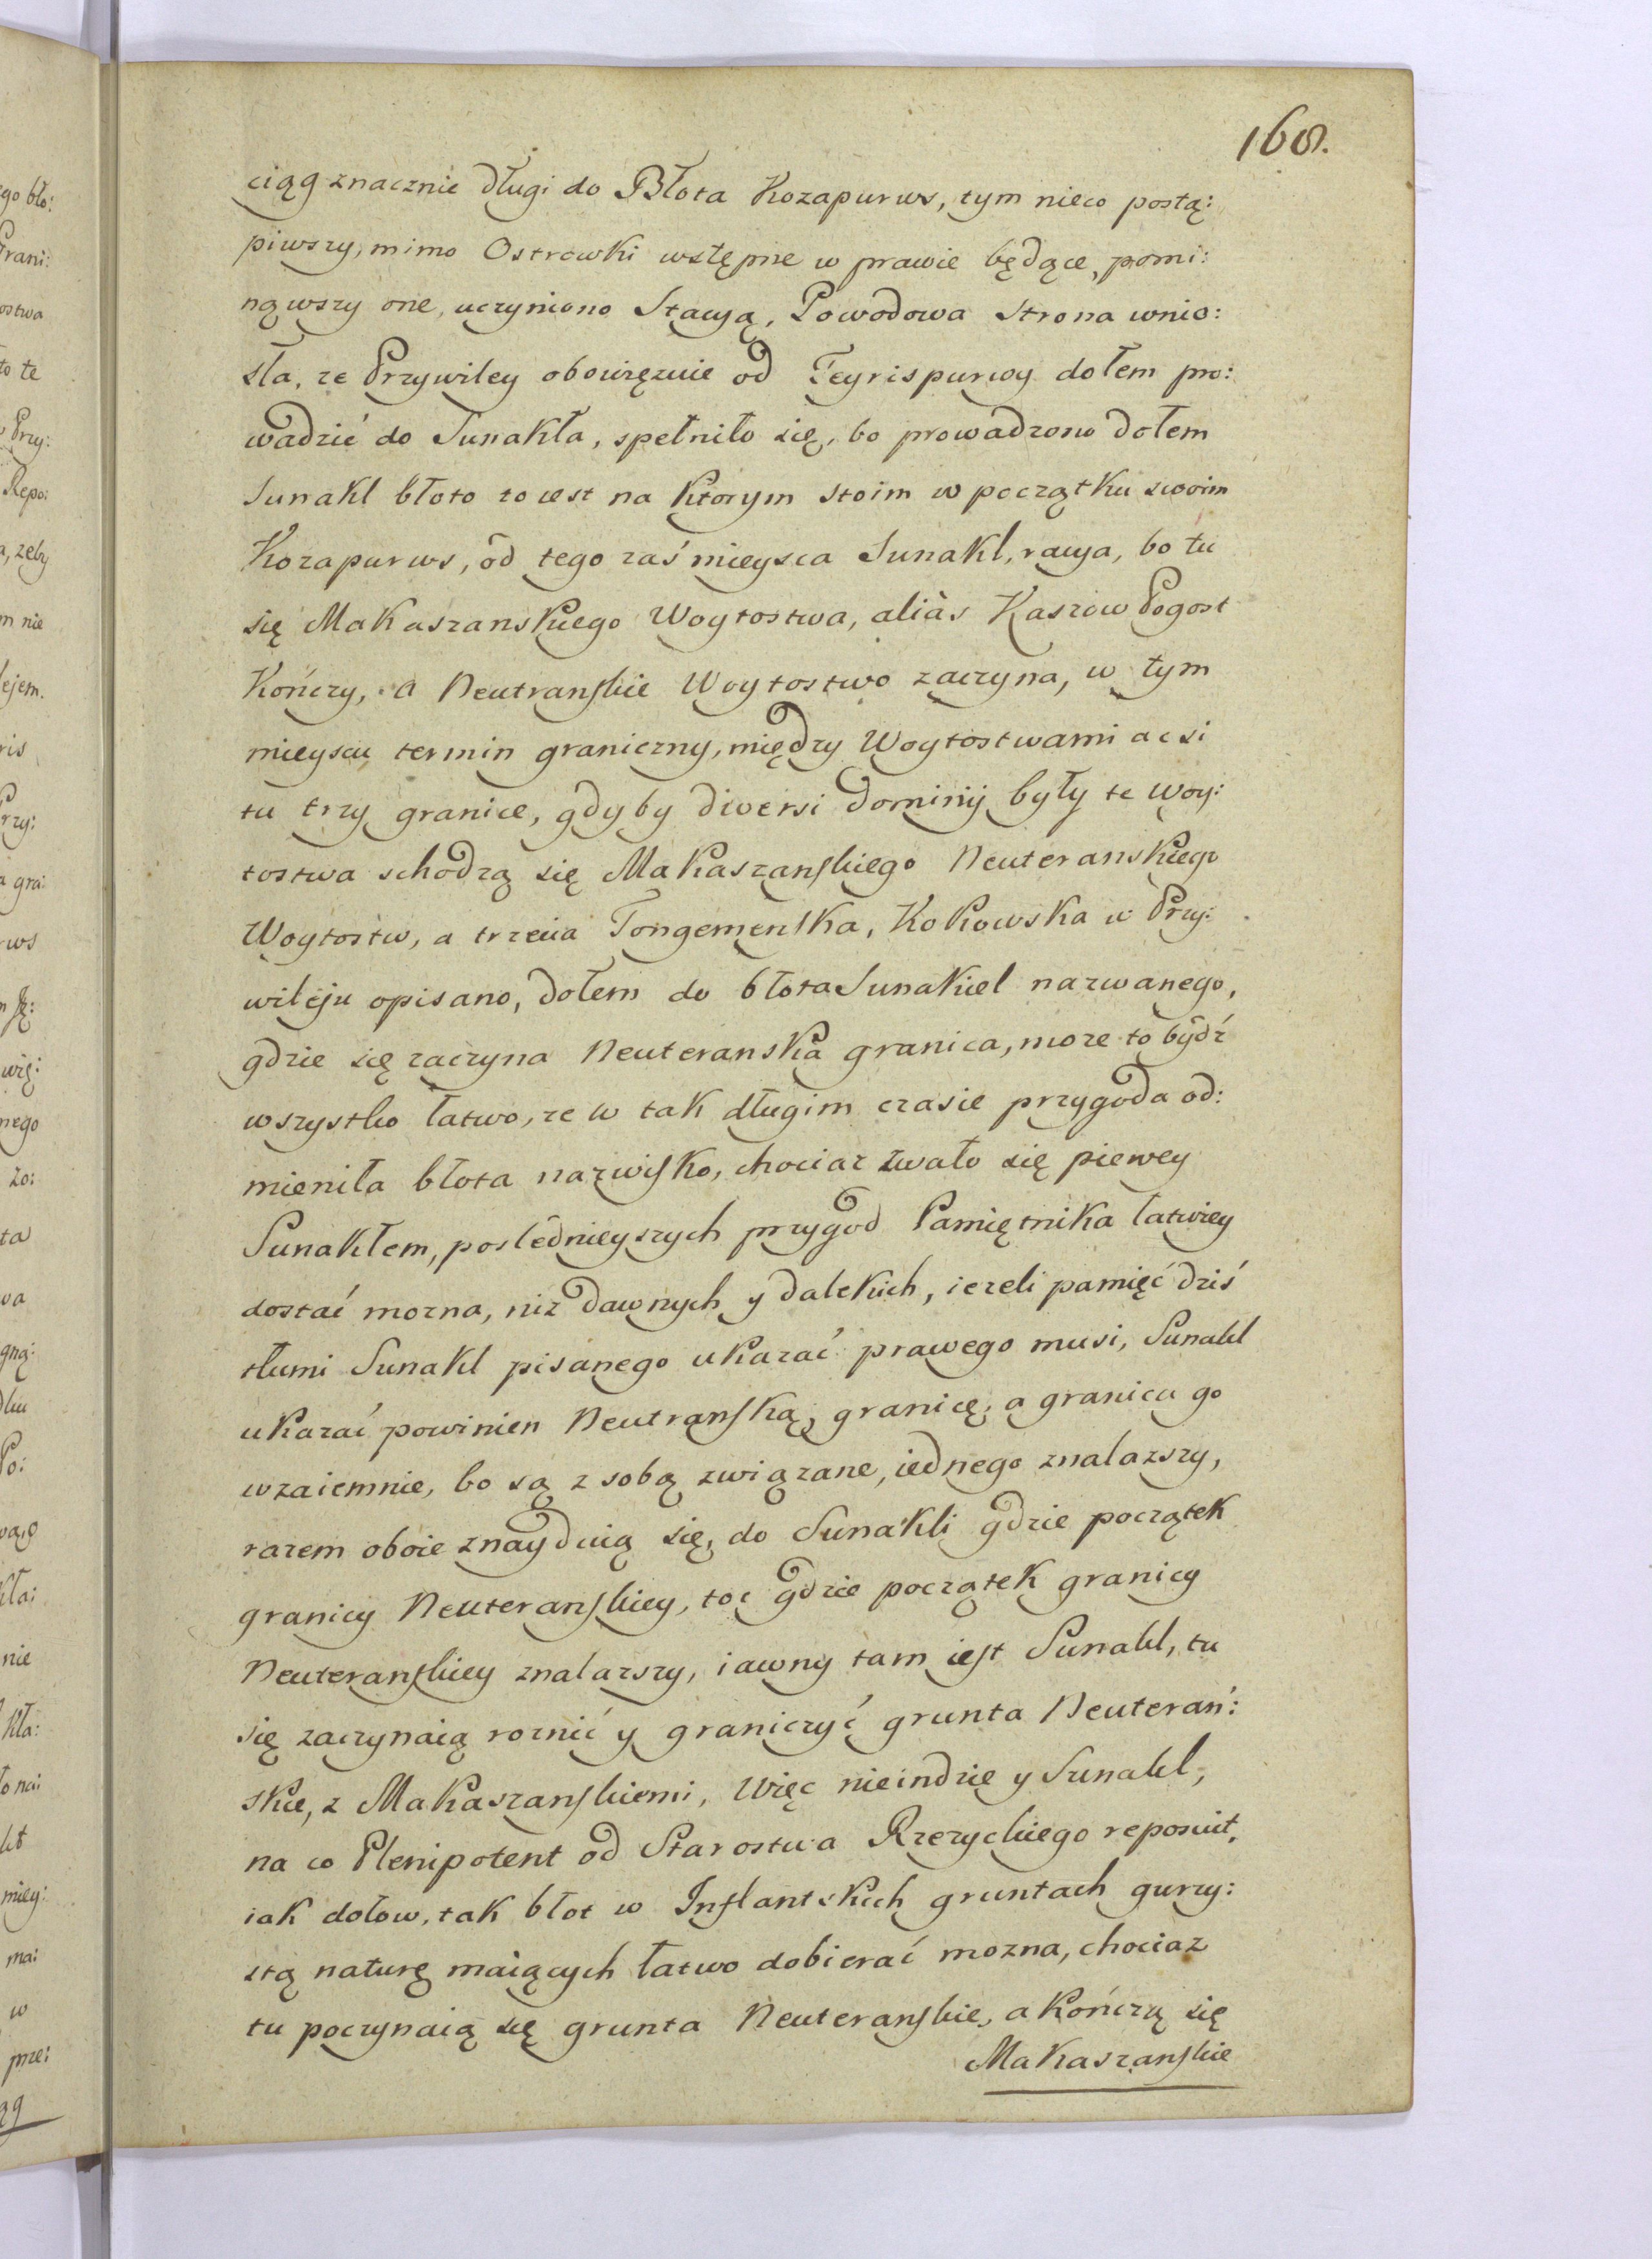 168.
ciąg znacznie długi do Błota Kozapurws, tym nieco postą:
piwszy, mimo Ostrowki wstępne w prawie będące, pomi:
nąwszy one, uczyniono Stacyą, Powodowa Strona wnio:
sła, ze Przywiley obowięzuie od Teyrispurwy dołem pro:
wadzić do Sunakła, spełniło się, bo prowadzono dołem
Sunakl błoto to iest na ktorym stoim w początku swoim
Kozapurws, od tego zaś mieysca Sunakl, racya, bo tu
się Makaszanskiego Woytostwa, aliàs Kaszow Pogost
Kończy, a Neutranskie Woytostwo zaczyna, w tym
mieyscu termin graniczny, między Woytostwami ac si
tu trzy granice, gdyby diversi dominij były te Woy:
tostwa schodzą się Makaszanskiego Neuteranskiego
Woytostw, a trzecia Tongemenska, Kokowska w Przy:
wileju opisano, dołem do błota Sunakiel nazwanego,
gdzie się zaczyna Neuteranska granica, moze to bydź
wszystko łatwo, ze w tak długim czasie przygoda od:
mieniła błota nazwisko, chociaz zwało się piewey
Sunakłem, poslednieyszych przygod Pamiętnika łatwiey
dostać mozna, niz dawnych y dalekich, iezeli pamięć dziś
tłumi Sunakl pisanego ukazać prawego musi, Sunakl
ukazać powinien Neutranską, granicę, a granica go
wzaiemnie, bo są z sobą związane, iednego znalazszy,
razem oboie znayduią się, do Sunakli gdzie początek
granicy Neuteranskiey, toc gdzie początek granicy
Neuteranskiey znalazszy, iawny tam iest Sunakl, tu
się zaczynaią roznić y graniczyć grunta Neuterań:
skie, z Makaszanskiemi, Więc nieindzie y Sunakl,
na co Plenipotent od Starostwa Rzezyckiego reposuit,
iak dołow, tak błot w Inflantskich gruntach gurzy:
stą naturę maiących łatwo dobierać mozna, chociaz
tu poczynaią się grunta Neuteranskie, a Kończą się
Makaszanskie